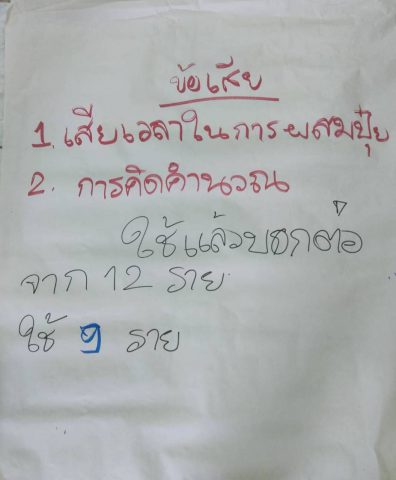 ข้อเสีย
1. เสียเวลาในการผสมปุ๋ย
2. การคิดคำนวณ
ใช้แล้วบอกต่อ
จาก 12 ราย
ใช้ 9 ราย